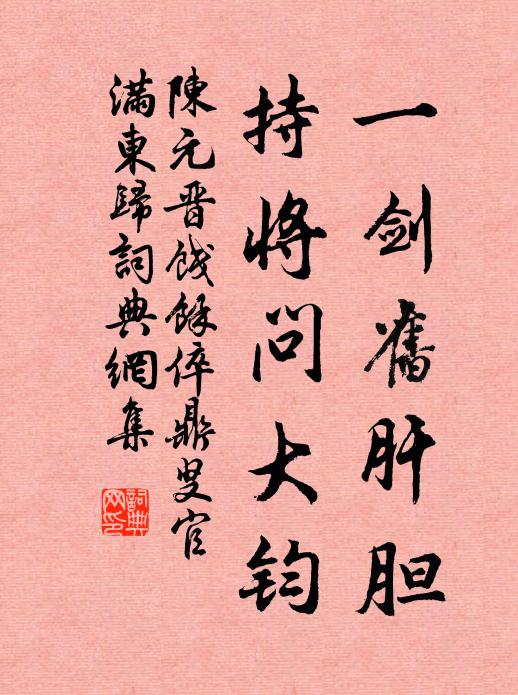 一剑旧肝胆
持将问大钧
陳元晋餞餘倅鼎叟官
滿東歸詞典網集
詞典网印